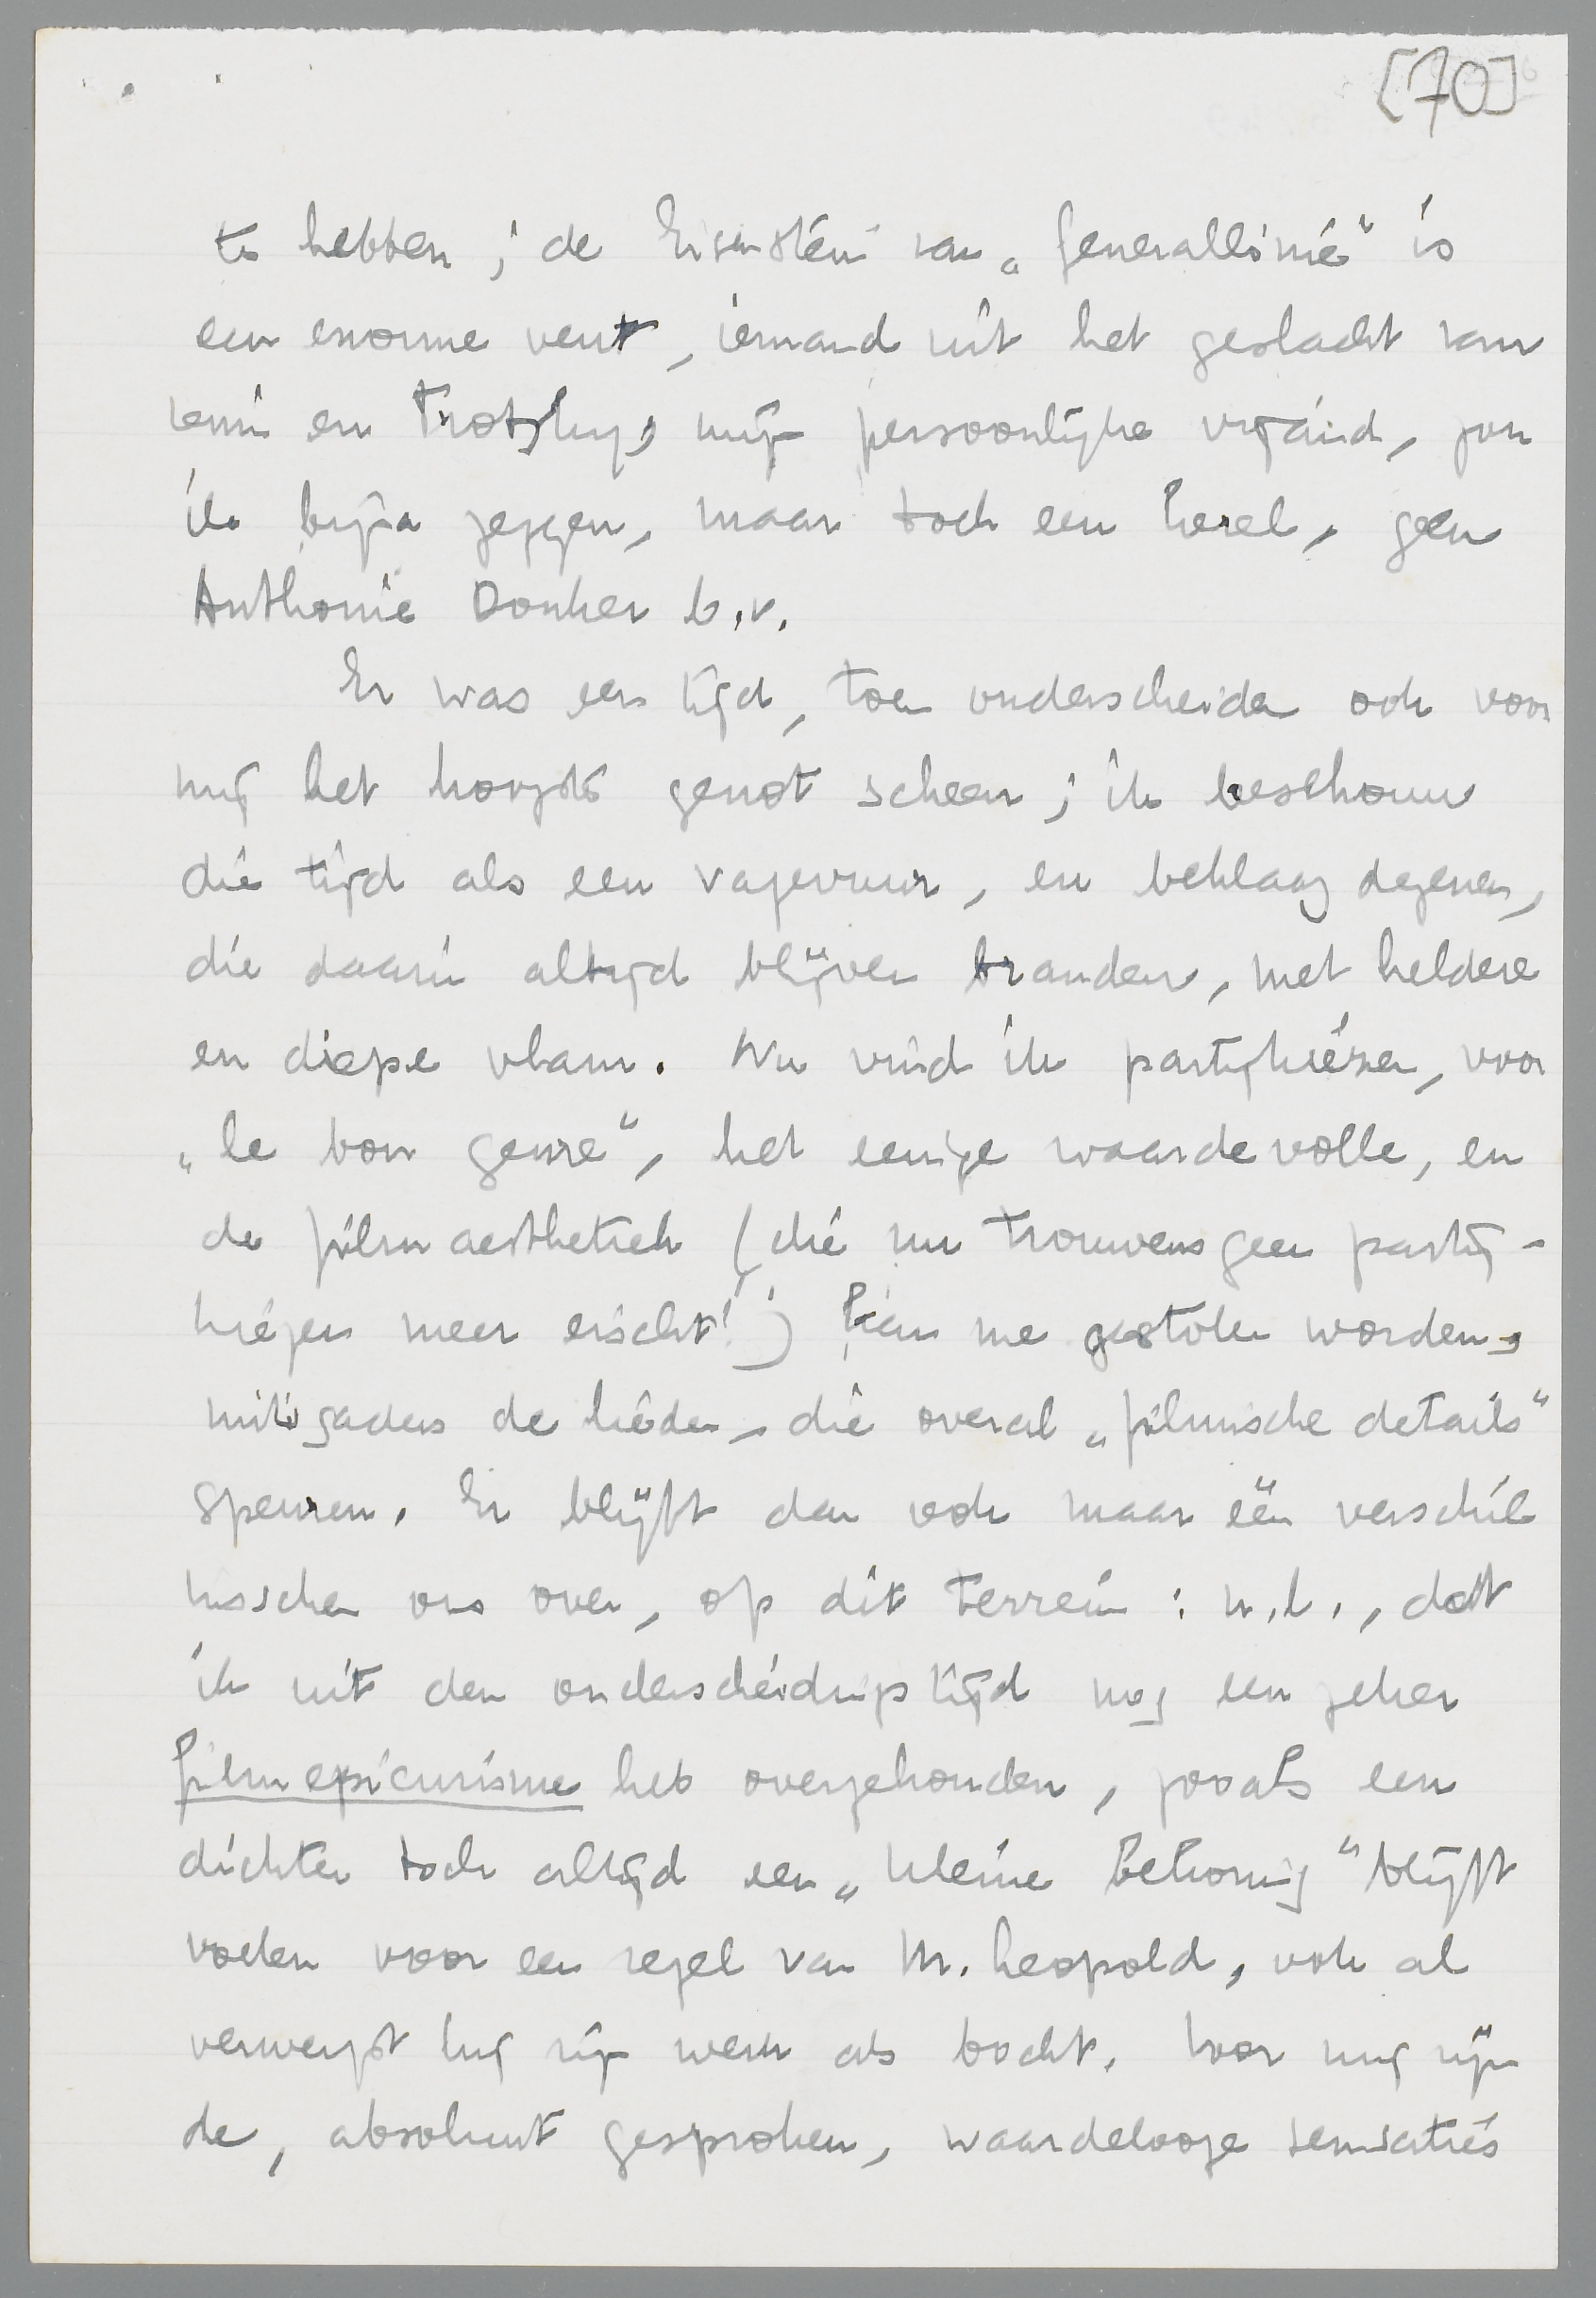 [70]
te hebben; de Eisenstein van „Generallinie" is
een enorme vent, iemand uit het geslacht van
Lenin en Trotzky, mijn persoonlijke vijand, zou
ik bijna zeggen, maar toch een kerel, geen
Anthonie Donker b.v.
Er was een tijd, toen onderscheiden ook voor
mij het hoogste genot scheen; ik beschouw
die tijd als een vagevuur, en beklaag degenen,
die daarin altijd blijven branden, met heldere
en diepe vlam. Nu vind ik partijkiezen, voor
„le bon genre", het eenige waardevolle, en
de filmaesthetiek (die nu trouwens geen partij-
kiezen meer eischt!) kan me gestolen worden,
mitsgaders de lieden, die overal „filmische details"
speuren. Er blijft dan ook maar één verschil
tusschen ons over, op dit terrein: n.l., dat
ik uit den onderscheidingstijd nog een zeker
filmepicurisme heb overgehouden, zooals een
dichter toch altijd een „kleine betooning" blijft
voelen voor een regel van M. Leopold, ook al
verwerpt hij zijn werk als bocht. Voor mij zijn
de, absoluut gesproken, waardelooze sensaties